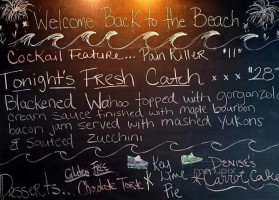 Welcome Back to the Beach
Cockail Feature... Pain Killer "11"
Tonight's Fresh Catch xxx $28
Blackened Wahoo topped with gorgonzola
cream sauce finished with maple bourbon
bacon jam served with mashed Yukons
& Sauteed zucchini
Desserts...
Gluten Free
Chocolate Torte
Key
Lime
Pie
Denise's
Carrot Cake